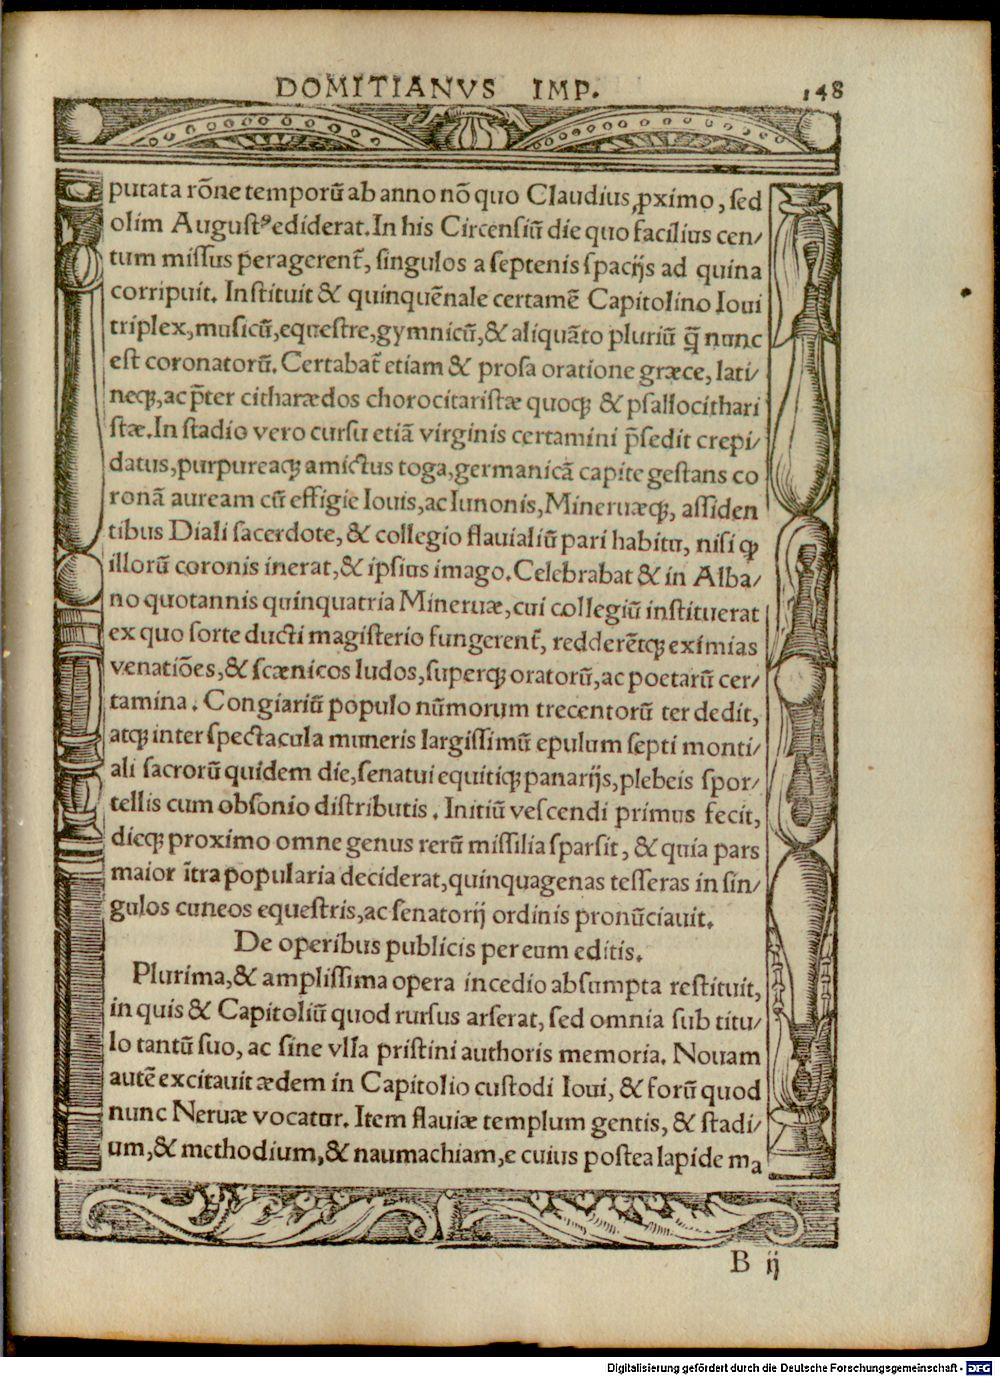 DOMITIANVS IMP. 148
putata rōne temporū ab anno nō quo Claudius ꝓximo, sed
olim Augustꝰ ediderat. In his Circensiū die quo facilius cen/
tum missus peragerent̄, singulos a septenis spacijs ad quina
corripuit. Instituit & quinquēnale certamē Capitolino Ioui
triplex, musicū, equestre, gymnicū, & aliquāto pluriū q̄ nunc
est coronatorū. Certabat̄ etiam & prosa oratione græce, lati/
neqꝫ, ac p̄ter citharædos chorocitaristæ quoqꝫ & psallocithari
stæ. In stadio vero cursu etiā virginis certamini p̄sedit crepi/
datus, purpureaqꝫ amictus toga, germanicā capite gestans co
ronā auream cū effigie Iouis, ac Iunonis, Mineruæqꝫ, assiden
tibus Diali sacerdote, & collegio flauialiū pari habitu, nisi qꝫ
illorū coronis inerat, & ipsius imago. Celebrabat & in Alba/
no quotannis quinquatria Mineruæ, cui collegiū instituerat
ex quo sorte ducti magisterio fungerent̄, redderētqꝫ eximias
venatiōes, & scænicos ludos, superqꝫ oratorū, ac poetarū cer/
tamina. Congiariū populo nūmorum trecentorū ter dedit,
atqꝫ inter spectacula muneris largissimū epulum septi monti/
ali sacrorū quidem die, senatui equitiqꝫ panarijs, plebeis spor/
tellis cum obsonio distributis. Initiū vescendi primus fecit,
dieqꝫ proximo omne genus rerū missilia sparsit, & quia pars
maior ītra popularia deciderat, quinquagenas tesseras in sin/
gulos cuneos equestris, ac senatorij ordinis pronūciauit.
De operibus publicis per eum editis.
Plurima, & amplissima opera incedio absumpta restituit,
in quis & Capitoliū quod rursus arserat, sed omnia sub titu/
lo tantū suo, ac sine vlla pristini authoris memoria. Nouam
autē excitauit ædem in Capitolio custodi Ioui, & forū quod
nunc Neruæ vocatur. Item flauiæ templum gentis, & stadi/
um, & methodium, & naumachiam, e cuius postea lapide ma
B ij
Digitalisierung gefördert durch die Deutsche Forschungsgemeinschaft - DFG